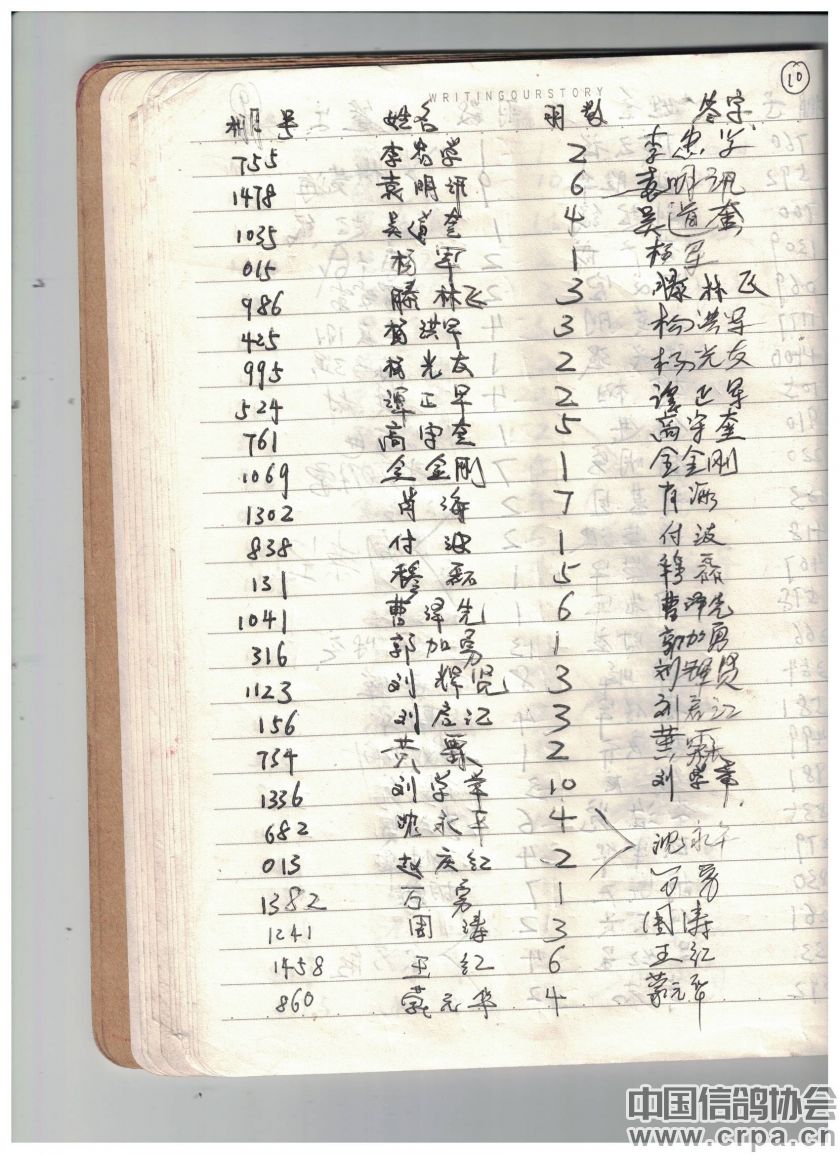 10
WRITINGOURSTORY
棚号 姓名 羽数 签字
755 李忠学 2 李忠学
1478 袁明讯 6 袁明讯
1035 吴道奎 4 吴道奎
015 杨军 1 杨军
986 滕林飞 3 滕林飞
425 杨洪军 3 杨洪军
995 杨光友 2 杨光友
524 谭正军 2 谭正军
761 高守奎 5 高守奎
1069 全金刚 1 全金刚
1302 肖海 7 肖海
838 付波 1 付波
131 穆磊 5 穆磊
1041 曹泽先 6 曹泽先
316 郭加勇 1 郭加勇
1123 刘辉贤 3 刘辉贤
156 刘 江 3 刘 江
734 黄 2 黄
1336 刘学华 10 刘学华
682 永平 4
沈永平
013 赵庆红 2
1382 万勇 1 万勇
1241 周涛 3 周涛
1458 王红 6 王红
860 蒙元华 4 蒙元华
中国信鸽协会
www.crpa.cn